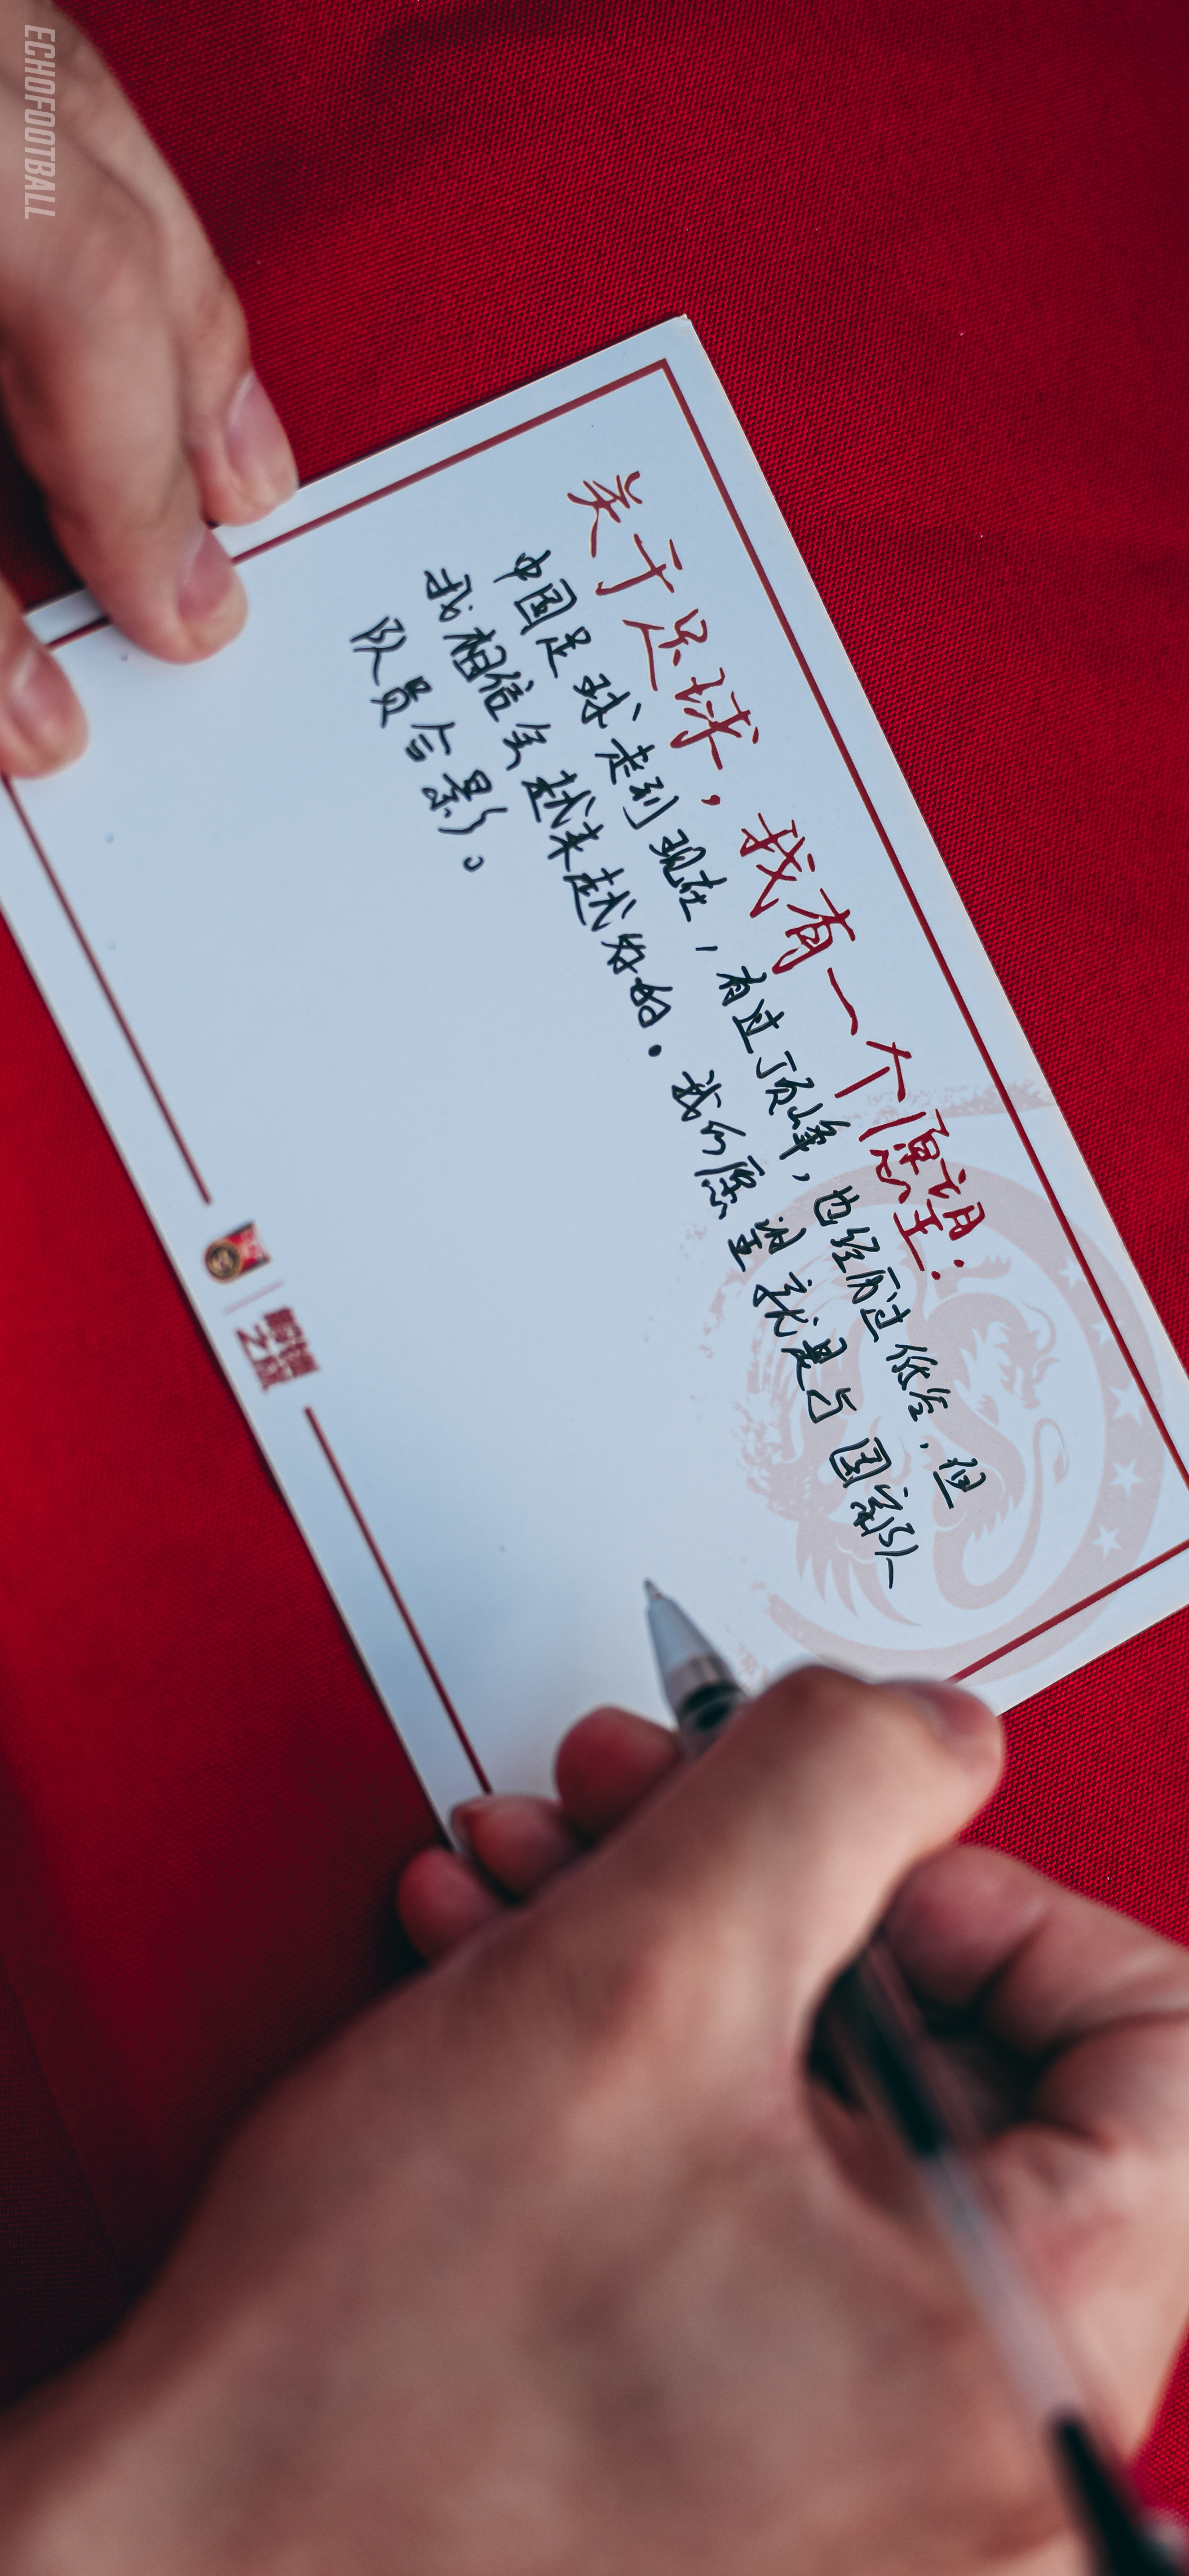 ECHOFOOTBALL
关于足球，我有一个愿望：
中国足球走到现在，有过顶峰，也经历过低谷，但
我相信会越来越好的．我的愿望就是与国家队
队员合影。